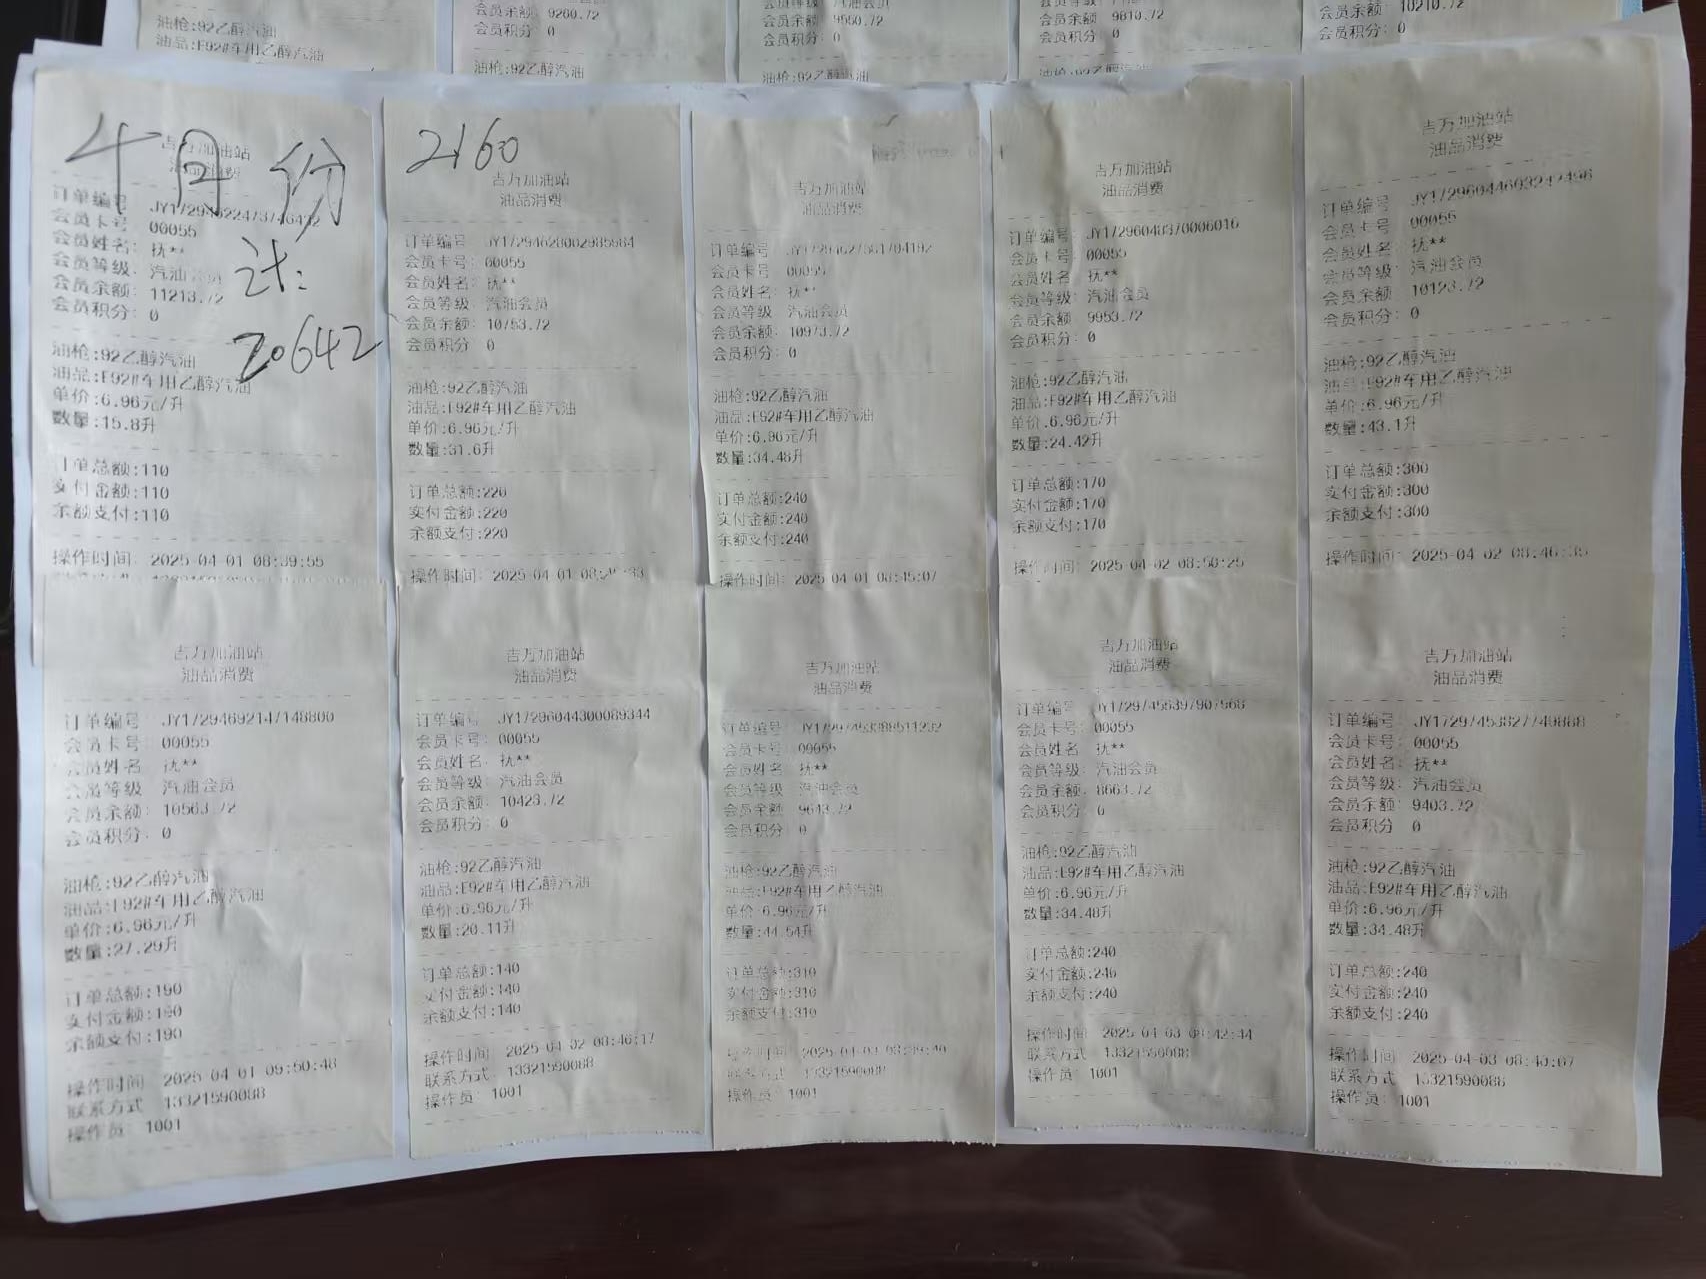 油枪:92乙醇汽油
油品:E92#车用乙醇汽油
会员余额 9200.72
会员积分 0
油枪:92乙醇汽油
会员余额 9550.72
会员积分: 0
会员余额 9810.72
会员积分: 0
会员余额 10210.72
会员积分: 0
4月份
计:
20642
吉万加油站
油品消费
订单编号
会员卡号 00055
会员姓名: 抚**
会员等级: 汽油会员
会员余额 11213.72
会员积分: 0
油枪:92乙醇汽油
油品:E92#车用乙醇汽油
单价:6.96元/升
数量:15.8升
订单总额:110
实付金额:110
余额支付:110
操作时间: 2025-04-01 08:39:55
2160
吉万加油站
油品消费
订单编号 JY17294628002985984
会员卡号: 00055
会员姓名: 抚**
会员等级: 汽油会员
会员余额: 10753.72
会员积分 0
油枪:92乙醇汽油
油品:E92#车用乙醇汽油
单价:6.96元/升
数量:31.6升
订单总额:220
实付金额:220
余额支付:220
操作时间: 2025-04-01
吉万加油站
油品消费
订单编号
会员卡号: 00055
会员姓名: 抚**
会员等级: 汽油会员
会员余额: 10973.72
会员积分: 0
油枪:92乙醇汽油
油品:E92#车用乙醇汽油
单价:6.96元/升
数量:34.48升
订单总额:240
实付金额:240
余额支付:240
操作时间: 2025-04-01 08:45:07
吉万加油站
油品消费
订单编号: JY17296048370006016
会员卡号: 00055
会员姓名: 抚**
会员等级: 汽油会员
会员余额: 9953.72
会员积分: 0
油枪:92乙醇汽油
油品:E92#车用乙醇汽油
单价:6.96元/升
数量:24.42升
订单总额:170
实付金额:170
余额支付:170
操作时间: 2025-04-02 08:50:25
吉万加油站
油品消费
订单编号
会员卡号: 00055
会员姓名: 抚**
会员等级: 汽油会员
会员余额 10123.72
会员积分: 0
油枪:92乙醇汽油
油品:E92#车用乙醇汽油
单价:6.96元/升
数量:43.1升
订单总额:300
实付金额:300
余额支付:300
操作时间: 2025-04-02 08:46:35
吉万加油站
油品消费
订单编号 JY17294692147148800
会员卡号: 00055
会员姓名 抚**
会员等级 汽油会员
会员余额: 10563.72
会员积分: 0
油枪:92乙醇汽油
油品:E92#车用乙醇汽油
单价:6.96元/升
数量:27.29升
订单总额:190
实付金额:190
余额支付:190
操作时间 2025-04-01 09:50:48
联系方式 13321590088
操作员: 1001
吉万加油站
油品消费
订单编号: JY1729604430089344
会员卡号: 00055
会员姓名: 抚**
会员等级: 汽油会员
会员余额: 10423.72
会员积分: 0
油枪:92乙醇汽油
油品:E92#车用乙醇汽油
单价:6.96元/升
数量:20.11升
订单总额:140
实付金额:140
余额支付:140
操作时间 2025-04-02 08:46:17
联系方式: 13321590088
操作员: 1001
吉万加油站
油品消费
订单编号:
会员卡号: 00055
会员姓名: 抚**
会员等级: 汽油会员
会员余额 9643.72
会员积分: 0
油枪:92乙醇汽油
油品:E92#车用乙醇汽油
单价:6.96元/升
数量:44.54升
订单总额:310
实付金额:310
余额支付:310
操作时间
联系方式: 13321590088
操作员: 1001
吉万加油站
油品消费
订单编号:
会员卡号: 00055
会员姓名: 抚**
会员等级: 汽油会员
会员余额: 8663.72
会员积分: 0
油枪:92乙醇汽油
油品:E92#车用乙醇汽油
单价:6.96元/升
数量:34.48升
订单总额:240
实付金额:240
余额支付:240
操作时间 2025-04-03 08:42:44
联系方式 13321590088
操作员: 1001
吉万加油站
油品消费
订单编号: JY17297453827740888
会员卡号: 00055
会员姓名: 抚**
会员等级: 汽油会员
会员余额: 9403.72
会员积分 0
油枪:92乙醇汽油
油品:E92#车用乙醇汽油
单价:6.96元/升
数量:34.48升
订单总额:240
实付金额:240
余额支付:240
操作时间: 2025-04-03
联系方式 13321590088
操作员: 1001